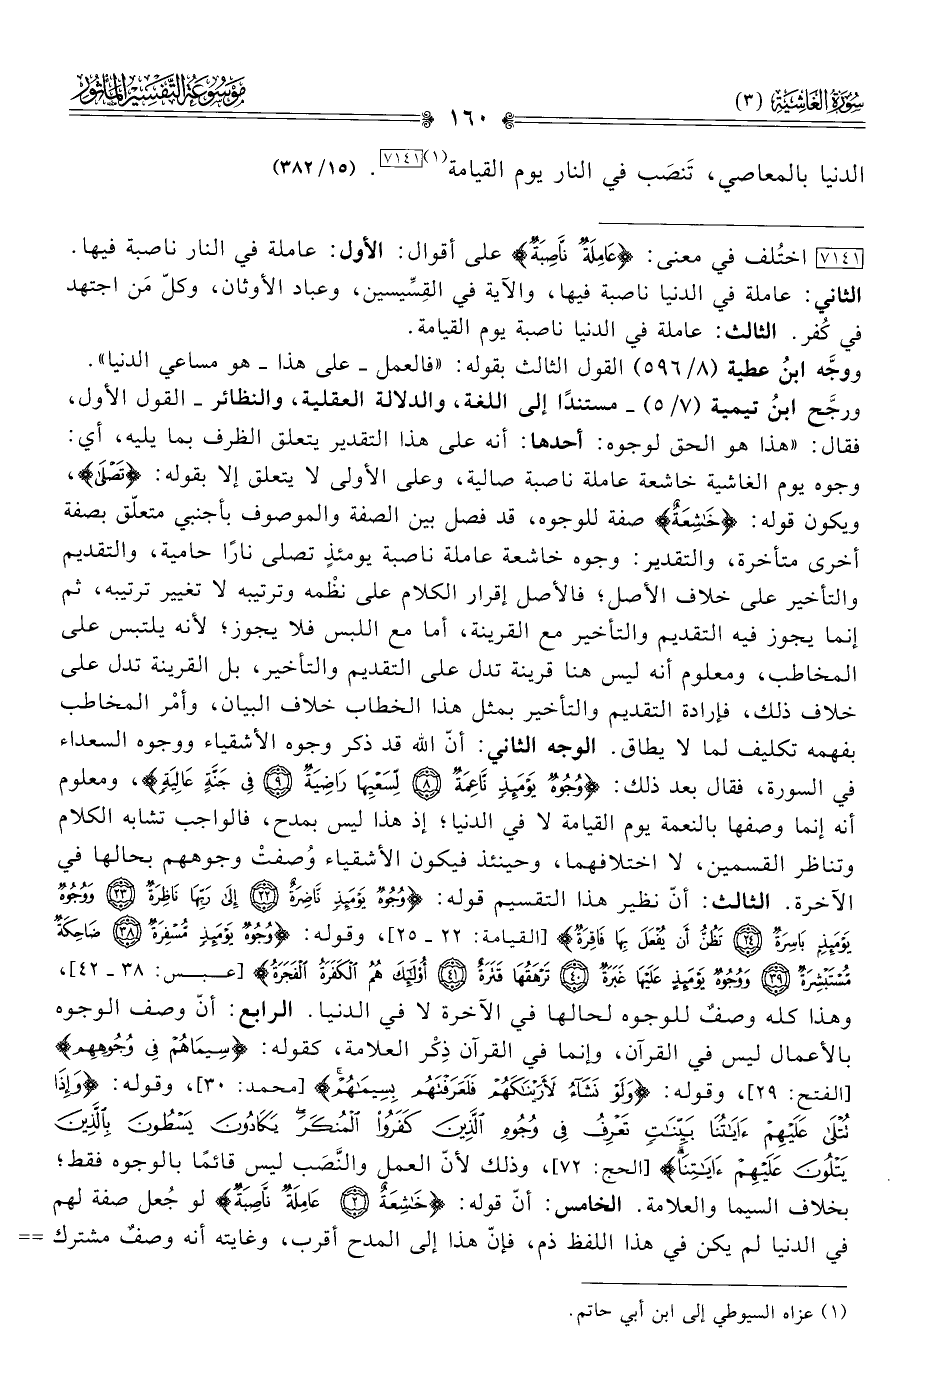 سُورَةُ الغَاشِيَةِ (٣)
١٦٠
مَوْسُوعَةُ التَّفْسِيرِ المَأْثُور
الدنيا بالمعاصي، تَنصَب في النار يوم القيامة(١)[٧١٤١]. (١٥/ ٣٨٢)
[٧١٤١] اختُلف في معنى: ﴿عَامِلَةٌ نَّاصِبَةٌ﴾ على أقوال: الأول: عاملة في النار ناصبة فيها.
الثاني: عاملة في الدنيا ناصبة فيها، والآية في القِسِّيسين، وعباد الأوثان، وكلّ مَن اجتهد
في كُفر. الثالث: عاملة في الدنيا ناصبة يوم القيامة.
ووجَّه ابنُ عطية (٨/ ٥٩٦) القول الثالث بقوله: «فالعمل ـ على هذا ـ هو مساعي الدنيا».
ورجَّح ابنُ تيمية (٧/ ٥) ـ مستندًا إلى اللغة، والدلالة العقلية، والنظائر ـ القول الأول،
فقال: «هذا هو الحق لوجوه: أحدها: أنه على هذا التقدير يتعلق الظرف بما يليه، أي:
وجوه يوم الغاشية خاشعة عاملة ناصبة صالية، وعلى الأولى لا يتعلق إلا بقوله: ﴿تَصْلَىٰ﴾،
ويكون قوله: ﴿خَٰشِعَةٌ﴾ صفة للوجوه، قد فصل بين الصفة والموصوف بأجنبي متعلّق بصفة
أخرى متأخرة، والتقدير: وجوه خاشعة عاملة ناصبة يومئذٍ تصلى نارًا حامية، والتقديم
والتأخير على خلاف الأصل؛ فالأصل إقرار الكلام على نظْمه وترتيبه لا تغيير ترتيبه، ثم
إنما يجوز فيه التقديم والتأخير مع القرينة، أما مع اللبس فلا يجوز؛ لأنه يلتبس على
المخاطب، ومعلوم أنه ليس هنا قرينة تدل على التقديم والتأخير، بل القرينة تدل على
خلاف ذلك، فإرادة التقديم والتأخير بمثل هذا الخطاب خلاف البيان، وأمْر المخاطب
بفهمه تكليف لما لا يطاق. الوجه الثاني: أنّ الله قد ذكر وجوه الأشقياء ووجوه السعداء
في السورة، فقال بعد ذلك: ﴿وُجُوهٌ يَوْمَئِذٍ نَّاعِمَةٌ ۝٨ لِّسَعْيِهَا رَاضِيَةٌ ۝٩ فِى جَنَّةٍ عَالِيَةٍ﴾، ومعلوم
أنه إنما وصفها بالنعمة يوم القيامة لا في الدنيا؛ إذ هذا ليس بمدح، فالواجب تشابه الكلام
وتناظر القسمين، لا اختلافهما، وحينئذ فيكون الأشقياء وُصفتْ وجوههم بحالها في
الآخرة. الثالث: أنّ نظير هذا التقسيم قوله: ﴿وُجُوهٌ يَوْمَئِذٍ نَّاضِرَةٌ ۝٢٢ إِلَىٰ رَبِّهَا نَاظِرَةٌ ۝٢٣ وَوُجُوهٌ
يَوْمَئِذٍ بَاسِرَةٌ ۝٢٤ تَظُنُّ أَن يُفْعَلَ بِهَا فَاقِرَةٌ﴾ [القيامة: ٢٢ ـ ٢٥]، وقوله: ﴿وُجُوهٌ يَوْمَئِذٍ مُّسْفِرَةٌ ۝٣٨ ضَاحِكَةٌ
مُّسْتَبْشِرَةٌ ۝٣٩ وَوُجُوهٌ يَوْمَئِذٍ عَلَيْهَا غَبَرَةٌ ۝٤٠ تَرْهَقُهَا قَتَرَةٌ ۝٤١ أُوْلَٰٓئِكَ هُمُ ٱلْكَفَرَةُ ٱلْفَجَرَةُ﴾ [عبس: ٣٨ ـ ٤٢]،
وهذا كله وصفٌ للوجوه لحالها في الآخرة لا في الدنيا. الرابع: أنّ وصف الوجوه
بالأعمال ليس في القرآن، وإنما في القرآن ذِكْر العلامة، كقوله: ﴿سِيمَاهُمْ فِى وُجُوهِهِم﴾
[الفتح: ٢٩]، وقوله: ﴿وَلَوْ نَشَآءُ لَأَرَيْنَٰكَهُمْ فَلَعَرَفْتَهُم بِسِيمَٰهُمْ﴾ [محمد: ٣٠]، وقوله: ﴿وَإِذَا
تُتْلَىٰ عَلَيْهِمْ ءَايَٰتُنَا بَيِّنَٰتٍ تَعْرِفُ فِى وُجُوهِ ٱلَّذِينَ كَفَرُوا۟ ٱلْمُنكَرَ يَكَادُونَ يَسْطُونَ بِٱلَّذِينَ
يَتْلُونَ عَلَيْهِمْ ءَايَٰتِنَا﴾ [الحج: ٧٢]، وذلك لأنّ العمل والنَّصَب ليس قائمًا بالوجوه فقط؛
بخلاف السيما والعلامة. الخامس: أنّ قوله: ﴿خَٰشِعَةٌ ۝٢ عَامِلَةٌ نَّاصِبَةٌ﴾ لو جُعل صفة لهم
في الدنيا لم يكن في هذا اللفظ ذم، فإنّ هذا إلى المدح أقرب، وغايته أنه وصفٌ مشترك ==
(١) عزاه السيوطي إلى ابن أبي حاتم.